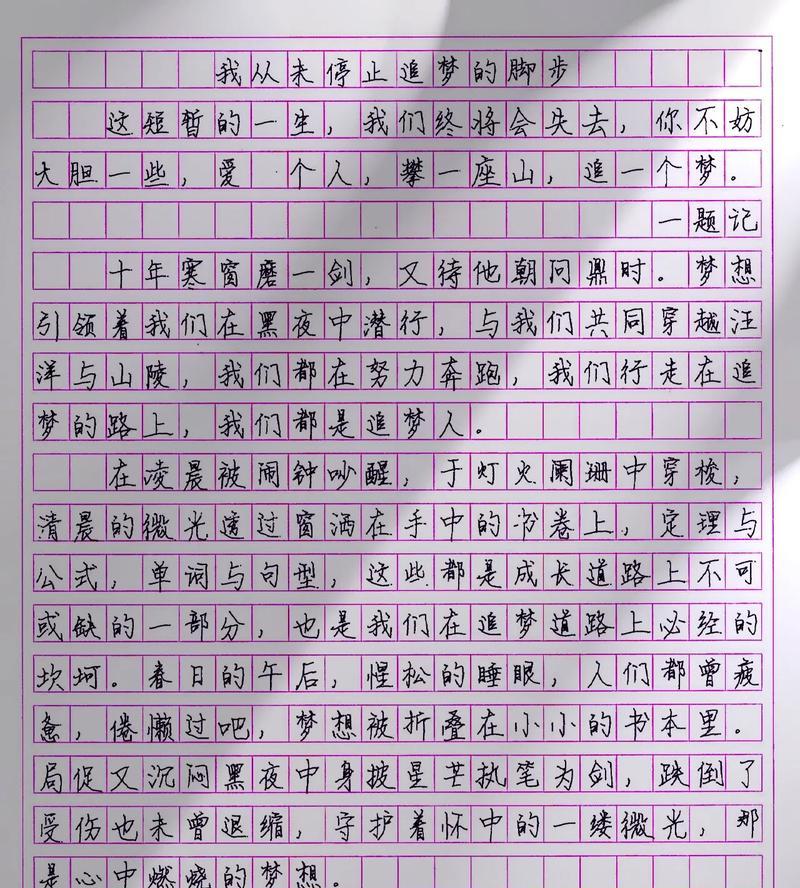 我从未停止追梦的脚步
这短暂的一生，我们终将会失去，你不妨
大胆一些，爱 个人，攀一座山，追一个梦。
一题记
十年寒窗磨一剑，又待他朝问鼎时。梦想
引领着我们在黑夜中潜行，与我们共同穿越汪
洋与山陵，我们都在努力奔跑，我们行走在追
梦的路上，我们都是追梦人。
在凌晨被闹钟吵醒，于灯火阑珊中穿梭，
清晨的微光透过窗洒在手中的书卷上，定理与
公式，单词与句型，这些都是成长道路上不可
或缺的一部分，也是我们在追梦道路上必经的
坎坷。春日的午后，惺松的睡眼，人们都曾疲
惫，倦懒过吧，梦想被折叠在小小的书本里。
局促又沉闷黑夜中身披星芒执笔为剑，跌倒了
受伤也未曾退缩，守护着怀中的一缕微光，那
是心中燃烧的梦想。